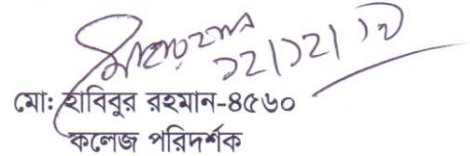 ১২/১২/১৮
মো: হাবিবুর রহমান-৪৫৬০
কলেজ পরিদর্শক